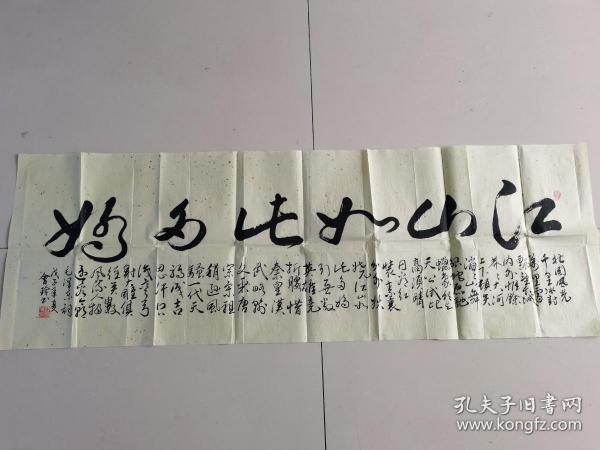 江山如此多娇
北国风光
千里冰封
万里雪
飘望长城
内外惟余
莽莽大河
上下顿失
滔滔山舞
银蛇原驰
蜡象欲与
天公试比
高须晴
日看红
装素裹
分外妖
娆江山
如此多娇
引无数
英雄竞
折腰惜
秦皇汉
武略输
文采唐
宗宋祖
稍逊风
骚一代天
骄成吉
思汗只
识弯弓
射大雕俱
往矣数
风流人物
还看今朝
毛泽东词
孔夫子旧书网
www.kongfz.com